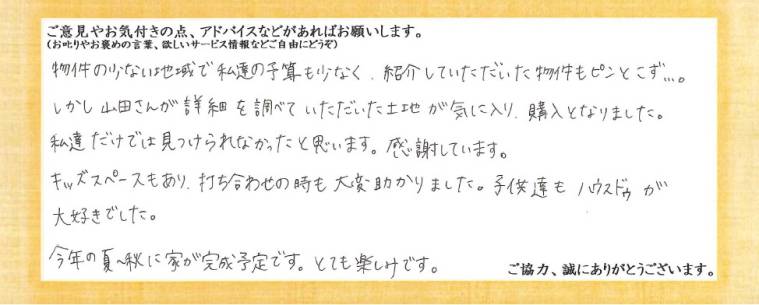 ご意見やお気付きの点、アドバイスなどがあればお願いします。
(お叱りやお褒めの言葉、欲しいサービス情報などご自由にどうぞ)
物件の少ない地域で私達の予算も少なく、紹介していただいた物件もピンとこず…。
しかし山田さんが詳細を調べていただいた土地が気に入り、購入となりました。
私達だけでは見つけられなかったと思います。感謝しています。
キッズスペースもあり、打ち合わせの時も大変助かりました。子供達もハウスドゥが
大好きでした。
今年の夏~秋に家が完成予定です。とても楽しみです。
ご協力、誠にありがとうございます。